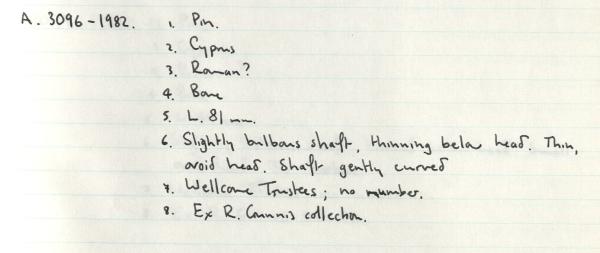 A. 3096-1982. 1. Pin.
2. Cyprus
3. Roman?
4. Bone
5. L. 81 mm.
6. Slightly bulbous shaft, thinning below head. Thin,
ovoid head. Shaft gently curved
7. Wellcome Trustees; no number.
8. Ex R. Gunnis collection.